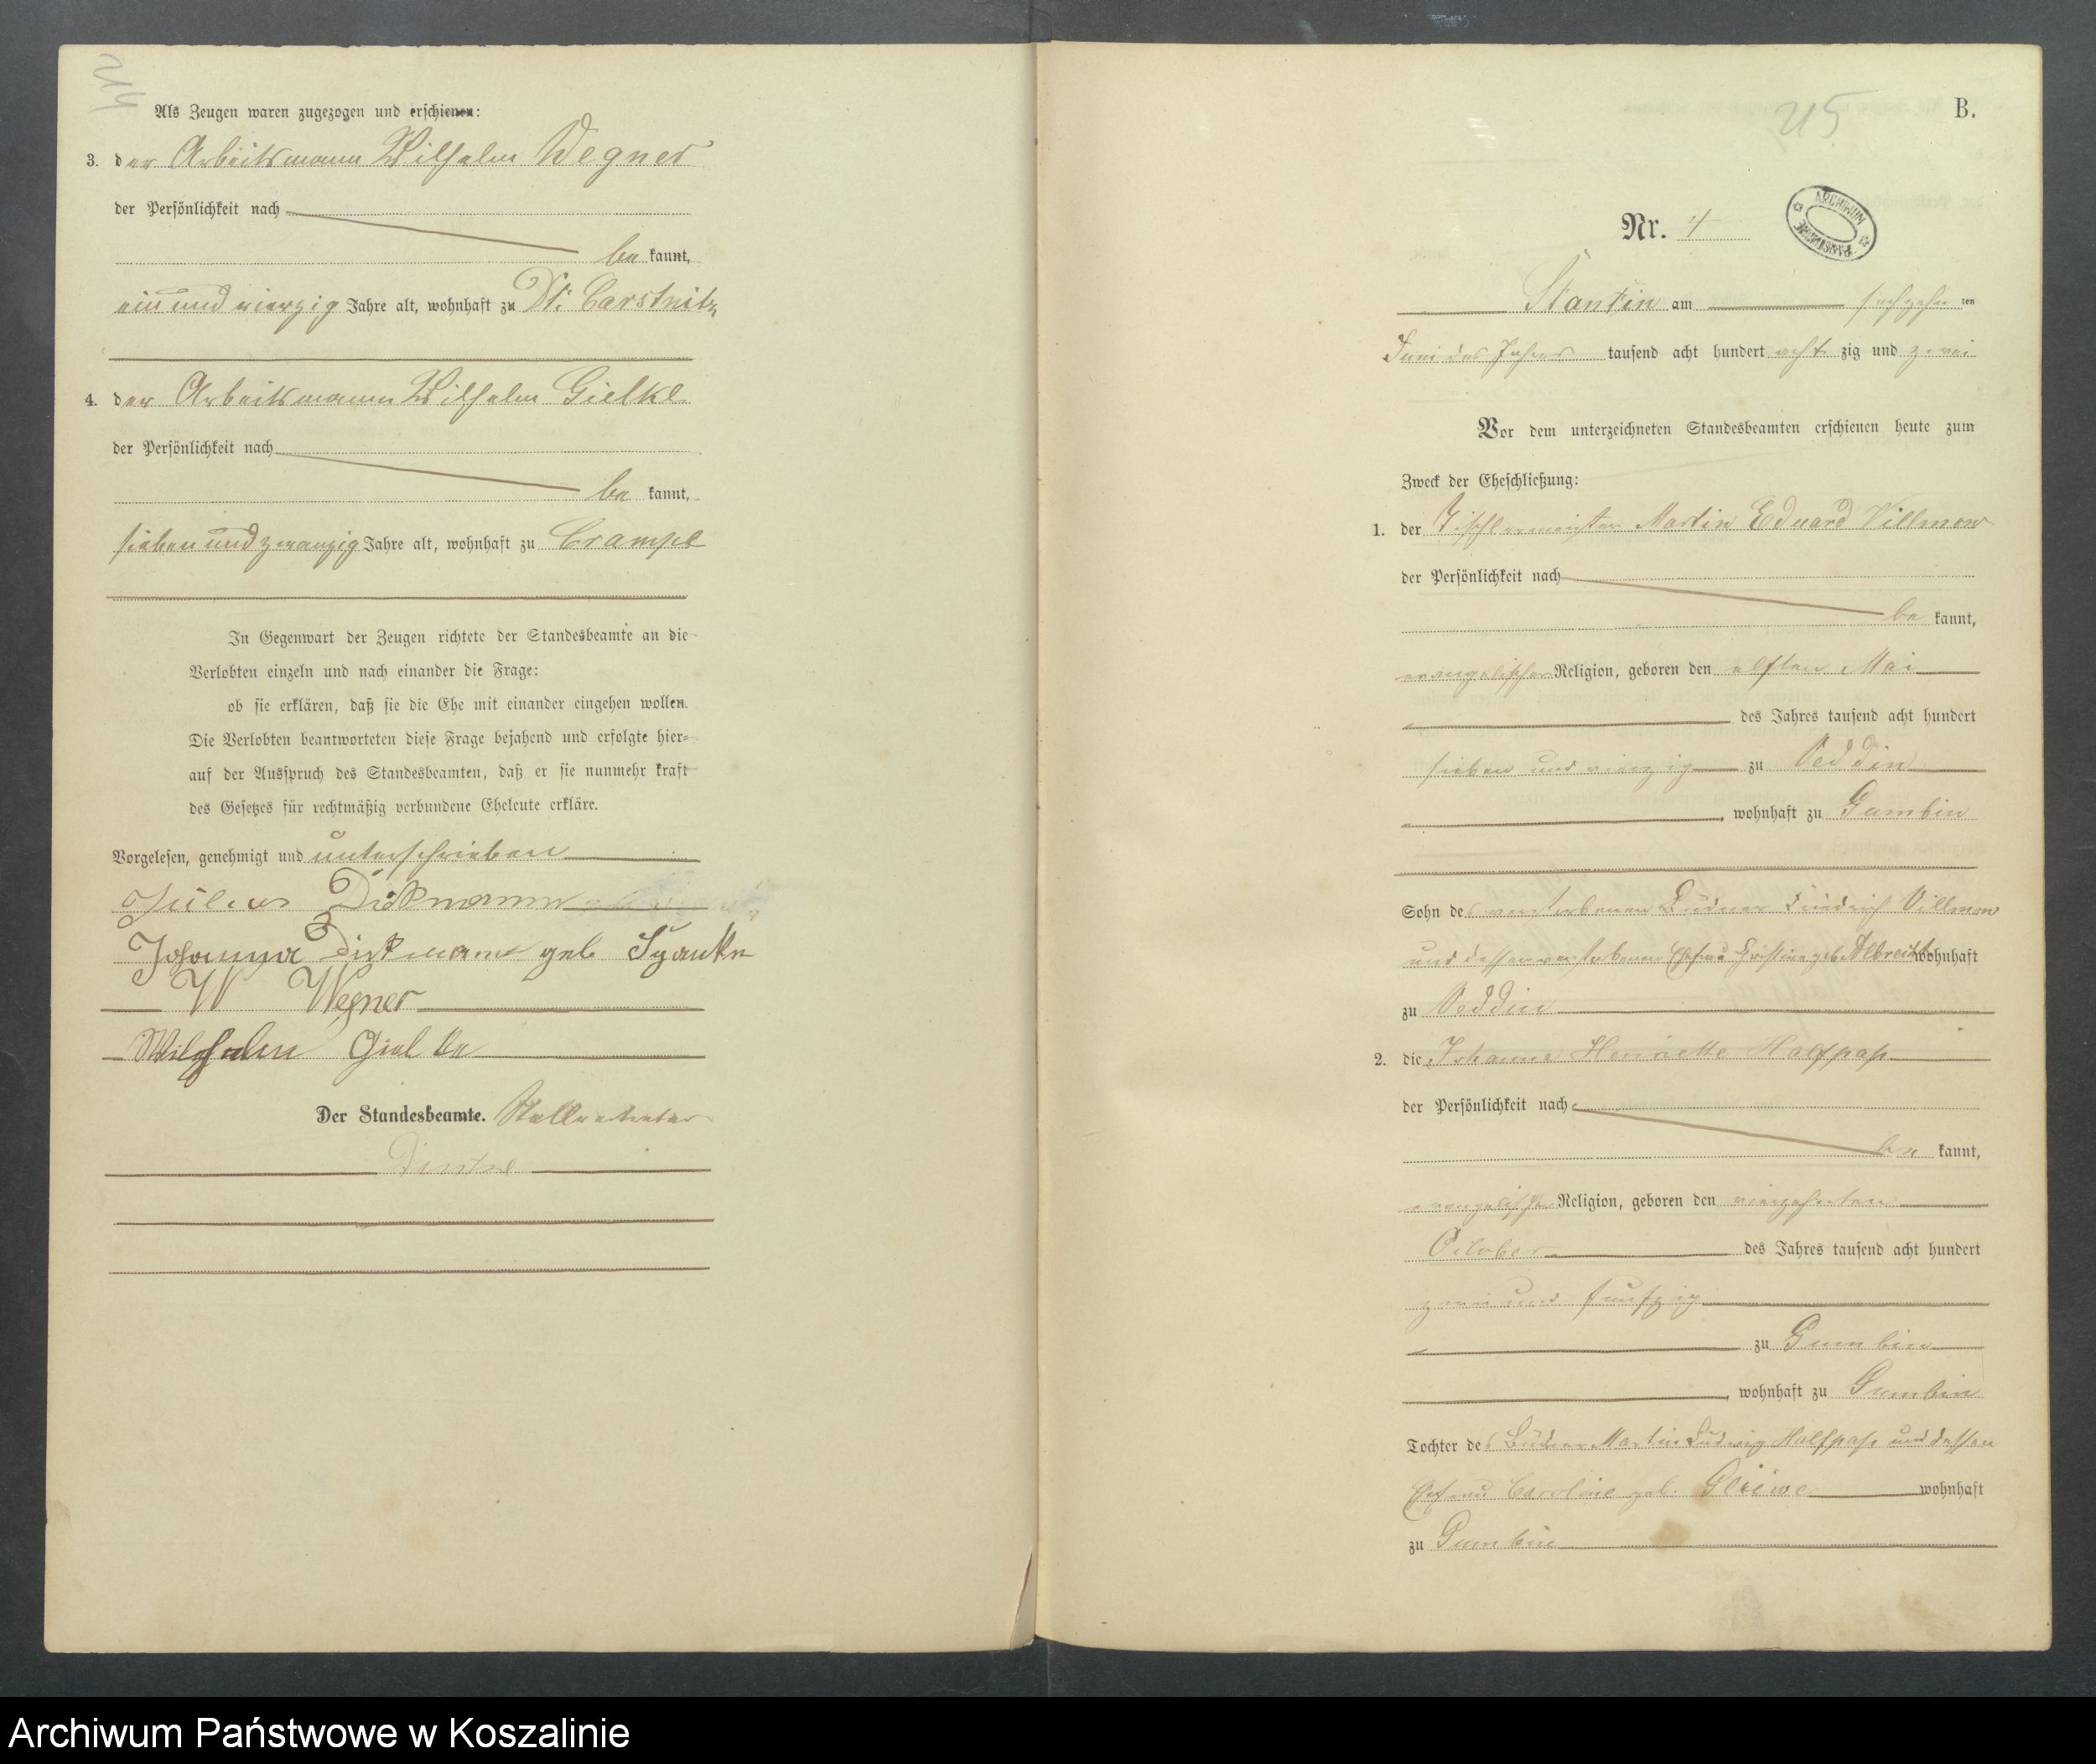 Als Zeugen waren zugezogen und erschienen:
3. der Arbeitsmann Wilhelm Wegner
der Persönlichkeit nach
be kannt,
ein und vierzig Jahre alt, wohnhaft zu Dt: Carstnitz
4. der Arbeitsmann Wilhelm Gielke
der Persönlichkeit nach
be kannt,
sieben und zwanzig Jahre alt, wohnhaft zu Crampe
In Gegenwart der Zeugen richtete der Standesbeamte an die
Verlobten einzeln und nach einander die Frage:
ob sie erklären, daß sie die Ehe mit einander eingehen wollen.
Die Verlobten beantworteten diese Frage bejahend und erfolgte hier-
auf der Ausspruch des Standesbeamten, daß er sie nunmehr kraft
des Gesetzes für rechtmäßig verbundene Eheleute erkläre.
Vorgelesen, genehmigt und unterschrieben
Julius Dickmann
Johanna Dickmann geb
W Wegner
Wilhelm Gielke
Der Standesbeamte. Stellvertreter
215
B.
Nr. 4
ARCHIWUM PAŃSTWOWE
Stantin am sechzehn ten
Juni des Jahres tausend acht hundert acht zig und zwei
Vor dem unterzeichneten Standesbeamten erschienen heute zum
Zweck der Eheschließung:
1. der Tischlermeister Martin Eduard Villmow
der Persönlichkeit nach
be kannt,
evangelischer Religion, geboren den elften Mai
des Jahres tausend acht hundert
sieben und vierzig zu Veddin
, wohnhaft zu Gumbin
Sohn des verstorbenen Büdner Friedrich Villmow
und dessen verstorbenen Ehefrau Christine geb Albrecht wohnhaft
zu Veddin
2. die Johanne Henriette Halfpap
der Persönlichkeit nach
be kannt,
evangelischer Religion, geboren den vierzehnten
October des Jahres tausend acht hundert
zwei und funfzig
zu Gumbin
, wohnhaft zu Gumbin
Tochter des Büdner Martin Ludwig Halfpap und dessen
Ehefrau Caroline geb. Gliewe wohnhaft
zu Gumbin
Archiwum Państwowe w Koszalinie